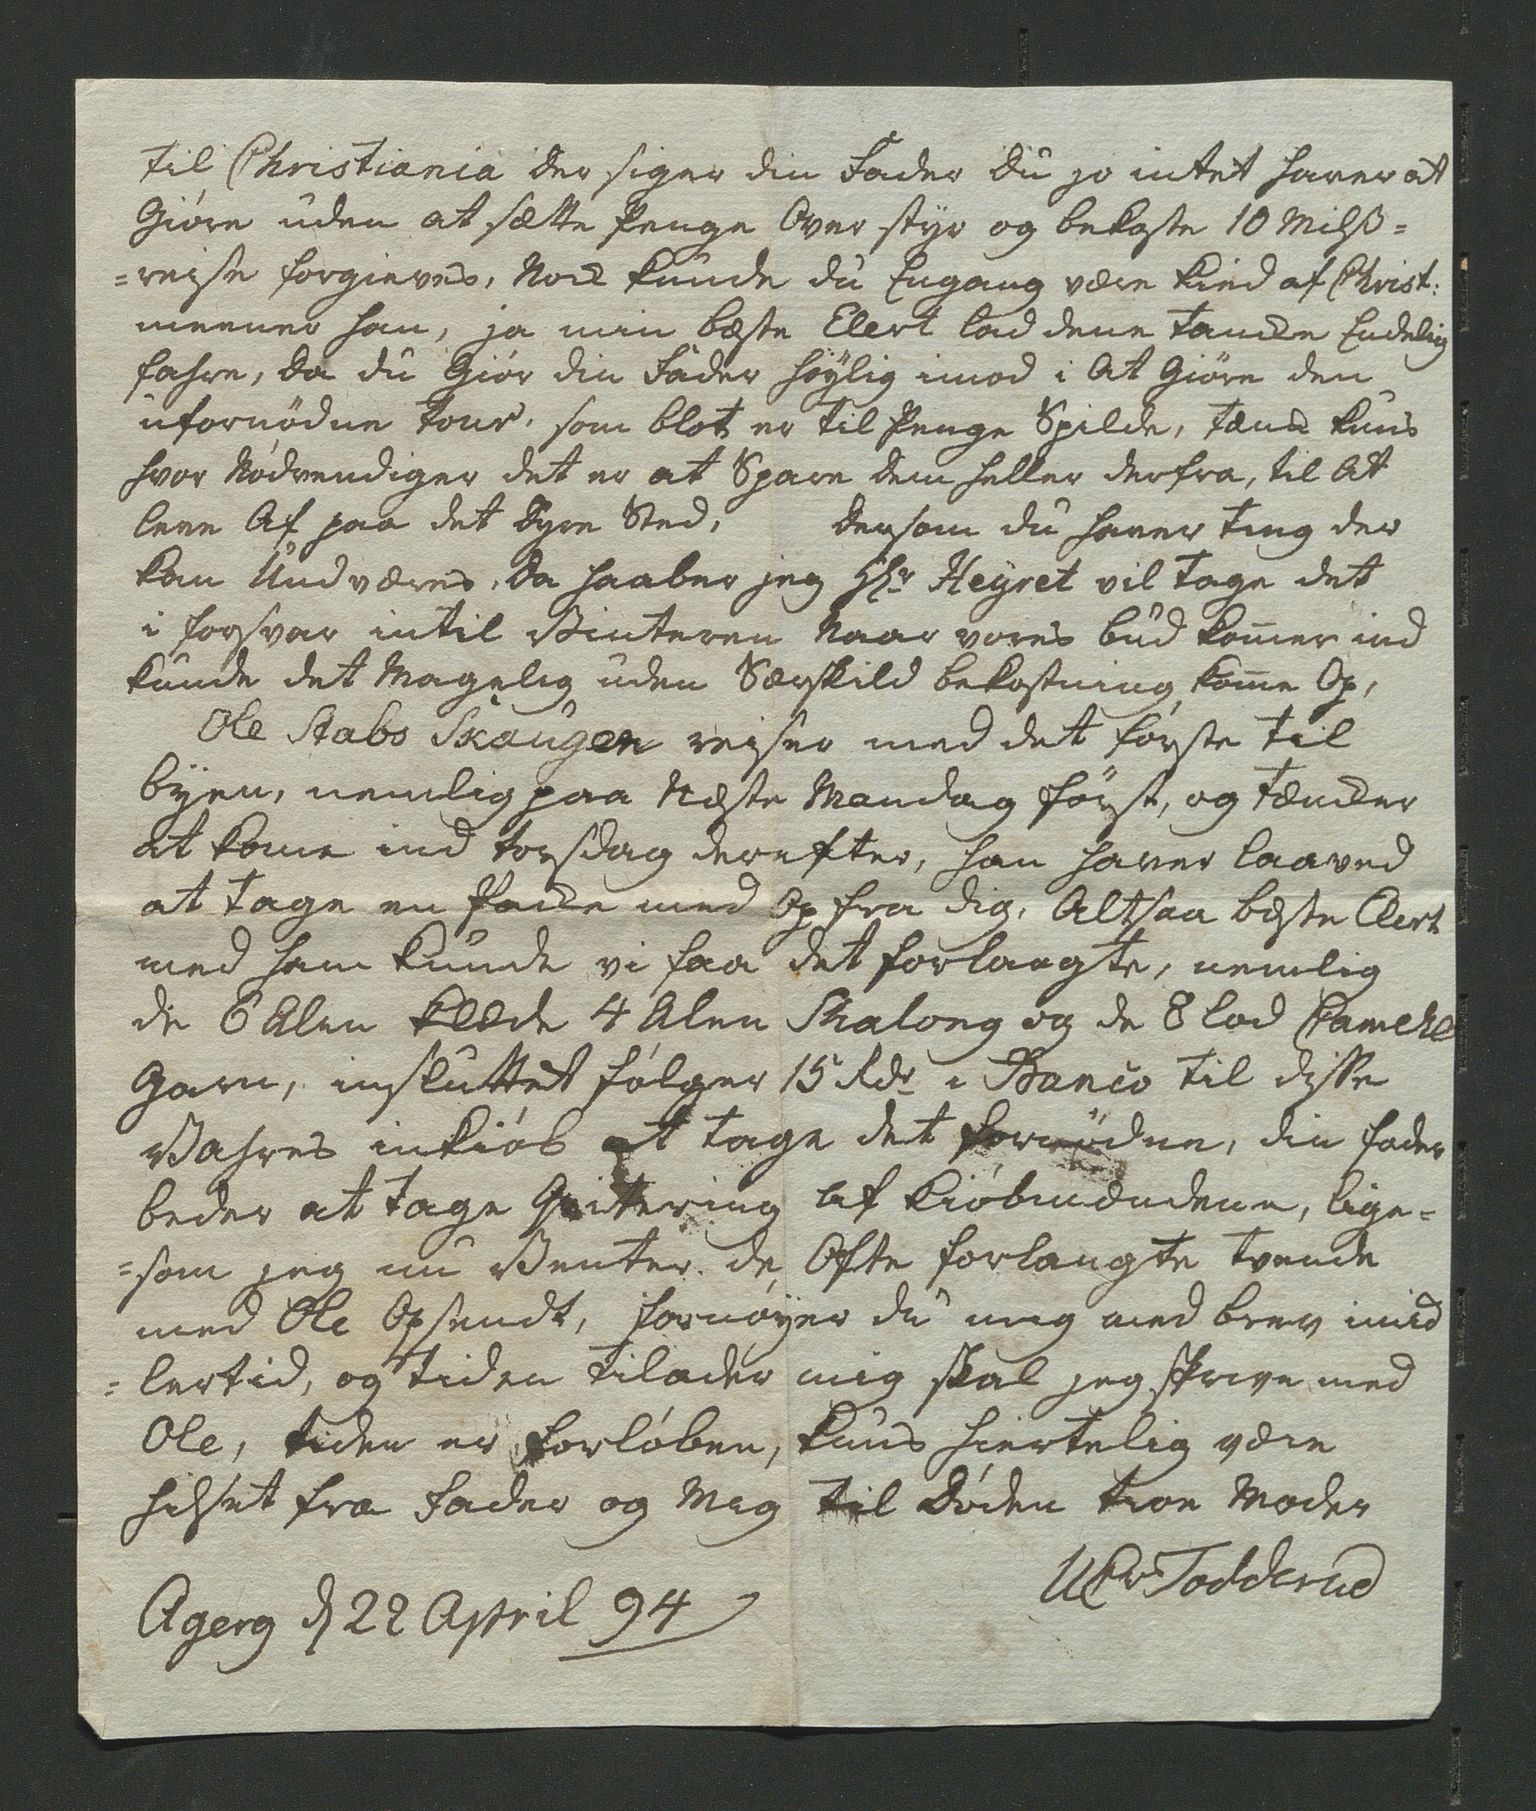 til Christiania der siger din Fader du jo intet haver at
Giöre uden at sætte Penge Over styr og bekoste 10 Milß=
=reise forgieves, Nok kunde du Engang være kied af Christ:
meener han, ja min beste Elert lad dene Tanke Endelig
fahre, da du Giör din Fader höylig imod i At Giöre den
ufornödne tour, som blot er til Penge Spilde, tænk kuns
hvor Nödvendiger det er at Spare dem heller derfra, til At
leve Af paa det dyre Sted, dersom du haver ting der
kan Undværes, da haaber jeg Hr Heyret vil tage det
i forsvar intil Vinteren Naar vores bud komer ind
kunde det Magelig uden Særskild bekostning kome Op,
Ole Stabs Skaugen reiser med det förste til
byen, nemlig paa Neste Mandag först, og tænker
at kome ind torsdag derefter, han haver laaved
at tage en Pakke med Op fra dig, Altsaa beste Elert
med ham kunde vi faa det forlangte, nemlig
de 6 Alen klæde 4 Alen Skalong og de 8 lod Camehl
Garn, insluttet fölger 15 Rdr i Banco til disse
Vahres inkiöb at tage det fornödne, din fader
beder at tage Qvittering af kiöbmændene, lige=
=som jeg nu Venter de Ofte forlangte tvende
med Ole Opsendt, fornöyer du mig med brev imid
=lertid, og tiden tilader mig skal jeg skrive med
Ole, tiden er forlöben, kuns hiertelig være
hilset fra Fader og Mig til Döden troe Moder
Todderud
Agerg d 22 April 94